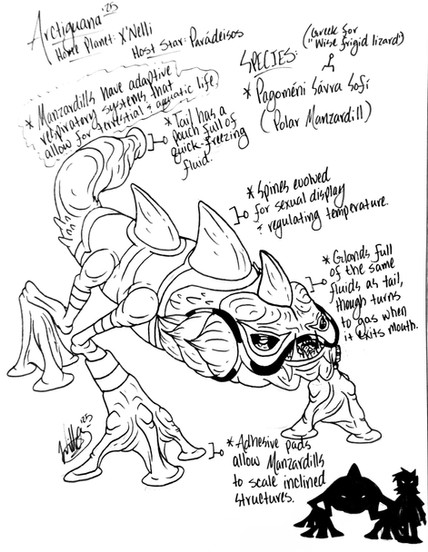 Arctiguana '25
Home Planet: X'Nelli
Host Star: Parádeisos
SPECIES:
(Greek for
"Wise frigid lizard")
* Pagoméni Sávra Sofí
(Polar Manzardill)
* Manzardills have adaptive
respiratory systems that
allow for terrestrial & aquatic life.
* Tail has a
pouch full of
quick-freezing
fluid.
* Spines evolved
for sexual display
& regulating temperature.
* Glands full
of the same
fluids as tail,
though turns
to gas when
it exits mouth.
* Adhesive pads
allow Manzardills
to scale inclined
structures.
'25